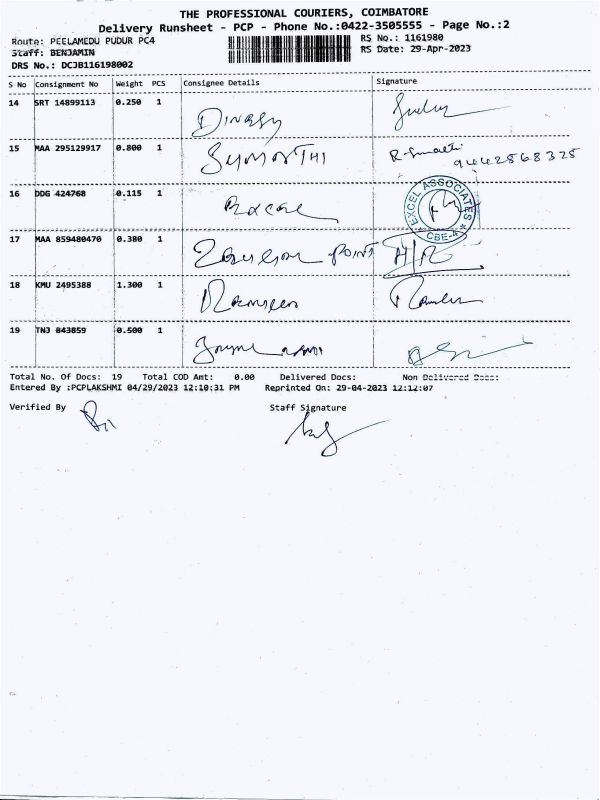 THE PROFESSIONAL COURIERS, COIMBATORE
Delivery Runsheet - PCP - Phone No.:0422-3505555 - Page No.:2
Route: PEELAMEDU PUDUR PC4
RS No.: 1161980
Staff: BENJAMIN
RS Date: 29-Apr-2023
DRS No.: DCJB116198002
S No Consignment No Weight PCS Consignee Details Signature
14 SRT 14899113 0.250 1
15 MAA 295129917 0.800 1 SUMATHI
9442568325
16 DDG 424768 0.115 1
EXCEL ASSOCIATES
* CBE-4 *
17 MAA 859480470 0.380 1 POINT
18 KMU 2495388 1.300 1
19 TNJ 843859 0.500 1
Total No. Of Docs: 19 Total COD Amt: 0.00 Delivered Docs: Non Delivered Docs:
Entered By :PCPLAKSHMI 04/29/2023 12:10:31 PM Reprinted On: 29-04-2023 12:12:07
Verified By Staff Signature